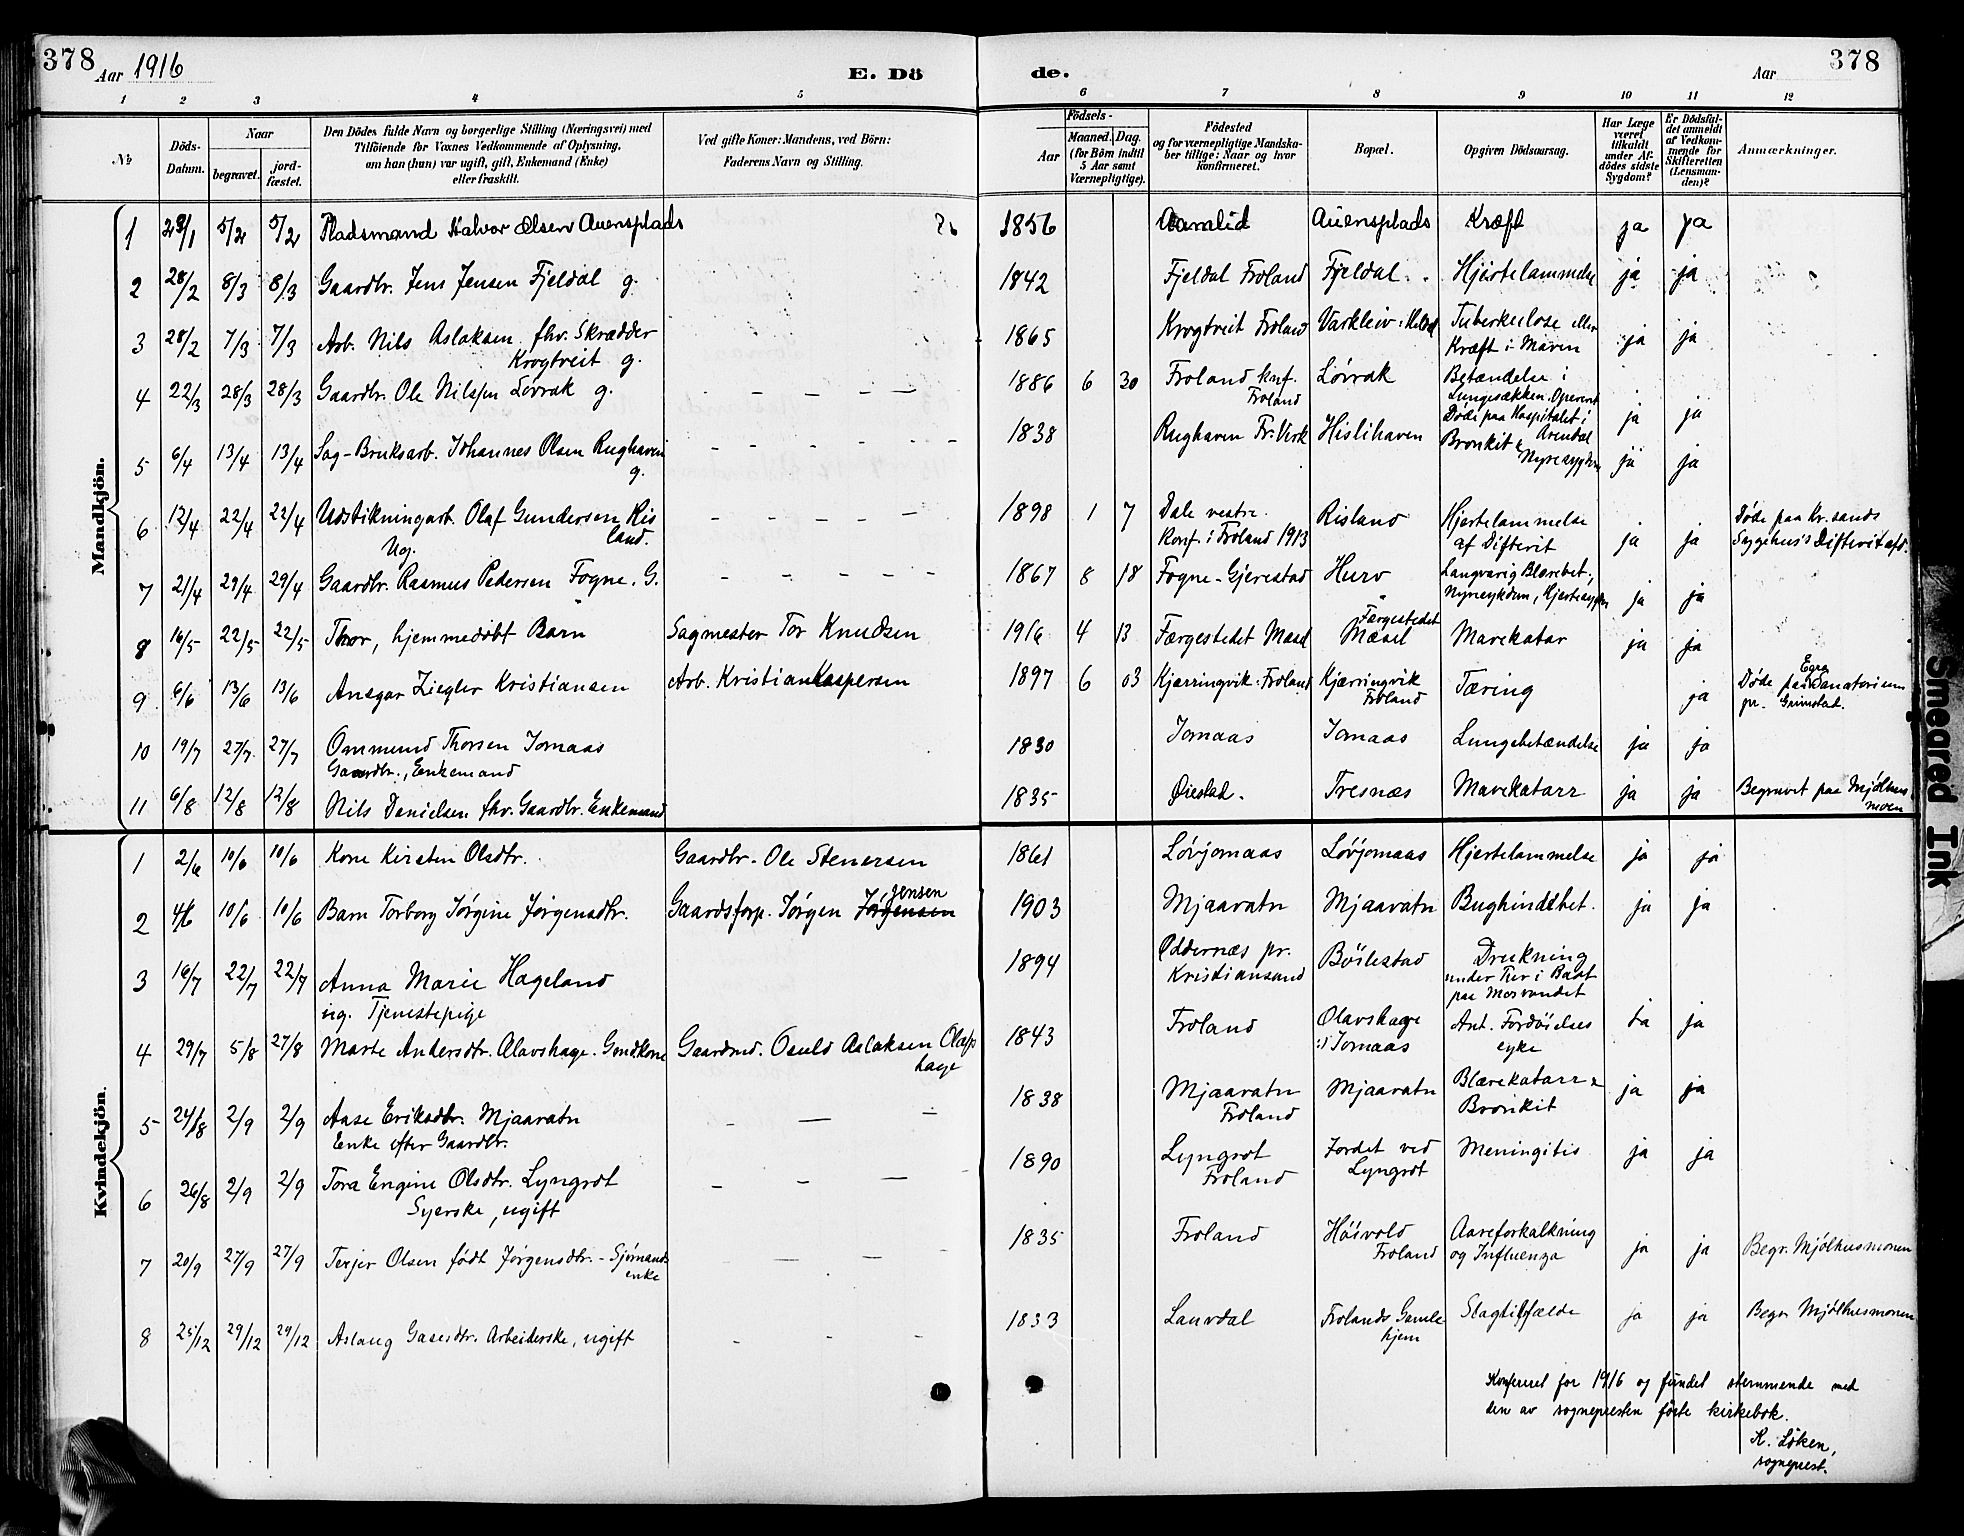 378 Aar 1916 E. Dö de. Aar 378
1 2 3 4 5 6 7 8 9 10 11 12
№ Döds-Datum. Naar begravet. jord-fæstet. Den Dödes fulde Navn og borgerlige Stilling (Næringsvei) med Tilföiende for Voxnes Vedkommende af Oplysning, om han (hun) var ugift, gift, Enkemand (Enke) eller fraskilt. Ved gifte Koner: Mandens, ved Börn: Faderens Navn og Stilling. Födsels- Aar Maaned. Dag. (for Börn indtil 5 Aar samt Værnepligtige). Födested og for værnepligtige Mandska-ber tillige: Naar og hvor konfirmeret. Bopæl. Opgiven Dödsaarsag. Har Læge været tilkaldt under Af-dödes sidste Sygdom? Er Dödsfal-det anmeldt af Vedkom-mende for Skifteretten (Lensman-den)? Anmærkninger.
Mandkjön.
1 5/2 5/2 Pladsmand Halvor Olsen Auensplads 1856 Aamlid Auensplads Kræft ja ja
2 28/2 8/3 8/3 Gaardbr. Jens Jensen Fjeldal g. 1842 Fjeldal Froland Fjeldal Hjertelammelse ja ja
3 28/2 7/3 7/3 Arb. Nils Aslaksen fhv. Skrædder
Krogtveit g. 1865 Krogtveit Froland Varkleiv Tuberkulose eller
Kræft i Maven ja ja
4 22/3 28/3 28/3 Gaardbr. Ole Nilsen Lövrak g. 1886 6 30 Froland knf.
Froland Lövrak Betændelse i
Lungesækken. Opereret
Døde paa Hospitalet i
Arendal ja ja
5 6/4 13/4 13/4 Sag-Bruksarb. Johannes Olsen Rughaven
g. 1838 Rughaven Fr. Verk Hislihaven Bronkit &
Nyresygdom ja ja
6 12/4 22/4 22/4 Udstikningarb. Olaf Gundersen Ris
land.
Ug. 1898 1 7 Dale vestre.
Konf. i Froland 1913 Risland Hjertelammelse
af Difterit ja ja Døde paa Kr.sands
Sygehus's Difteritafd.
7 21/4 29/4 29/4 Gaardbr. Rasmus Pedersen Fogne. G. 1867 8 18 Fogne - Gjerestad Hurv Langvarig Blærebet.,
Nyresykdom, Hjertesygdom ja ja
8 16/5 22/5 22/5 Thor, hjemmedøbt Barn Sagmester Tor Knudsen 1916 4 13 Færgestedet Mæsel Færgestedet
Mæsel Mavekatar ja ja
9 6/6 13/6 13/6 Ansgar Ziegler Kristiansen Arb. Kristian Kaspersen 1897 6 03 Kjærringvik - Froland Kjærringvik
Froland Tæring ja Døde paa Egra Sanatorium
pr. Grimstad.
10 19/7 27/7 27/7 Ommund Thorsen Jomaas
Gaardbr., Enkemand 1830 Jomaas Jomaas Lungebetændelse ja ja
11 6/8 12/8 12/8 Nils Danielsen fhv. Gaardbr. Enkemand 1835 Øiestad. Tresnæs Mavekatarr ja ja Begravet paa Mjølhus
moen
Kvindekjön.
1 2/6 10/6 10/6 Kone Kirsten Olsdtr. Gaardbr. Ole Stenersen 1861 Løvjomaas Løvjomaas Hjertelammelse ja ja
2 4/6 10/6 10/6 Barn Torborg Jørgine Jørgensdtr. Gaardsforp. Jørgen Jørgensen Jensen 1903 Mjaavatn Mjaavatn Bughindebet. ja ja
3 16/7 22/7 22/7 Anna Marie Hageland
ug. Tjenestepige 1894 Oddernæs pr.
Kristiansand Böilestad Drukning
under Tur i Baat
paa Mosvandet
4 29/7 5/8 27/8 Marte Andersdtr. Olavshage. Gmdkone Gaardmd. Osuld Aslaksen Olafs
hage 1843 Froland Olavshage
i Jomaas Ant. Fordöielses
syke ja ja
5 24/8 2/9 2/9 Aase Eriksdtr. Mjaavatn
Enke efter Gaardbr. 1838 Mjaavatn
Froland Mjaavatn Blærekatarr &
Bronkit ja ja
6 26/8 2/9 2/9 Tora Engine Olsdtr. Lyngrot
Syerske, ugift 1890 Lyngrot
Froland Jordet ved
Lyngrot Meningitis ja ja
7 20/9 27/9 27/9 Terjer Olsen født Jørgensdtr. - Sjømands
enke 1835 Froland Höisvold
Froland Aareforkalkning
og Influenza ja ja Begr. Mjølhusmonen
8 25/12 29/12 29/12 Aslaug Gaasdtr. Arbeiderske, ugift 1833 Lauvdal Frolands Gamle
hjem Slagtilfælde ja ja Begr. Mjølhusmonen
Konferert for 1916 og fundet stemmende med
den av sognepresten førte kirkebok.
K. Löken,
sogneprest.
Smeared Ink